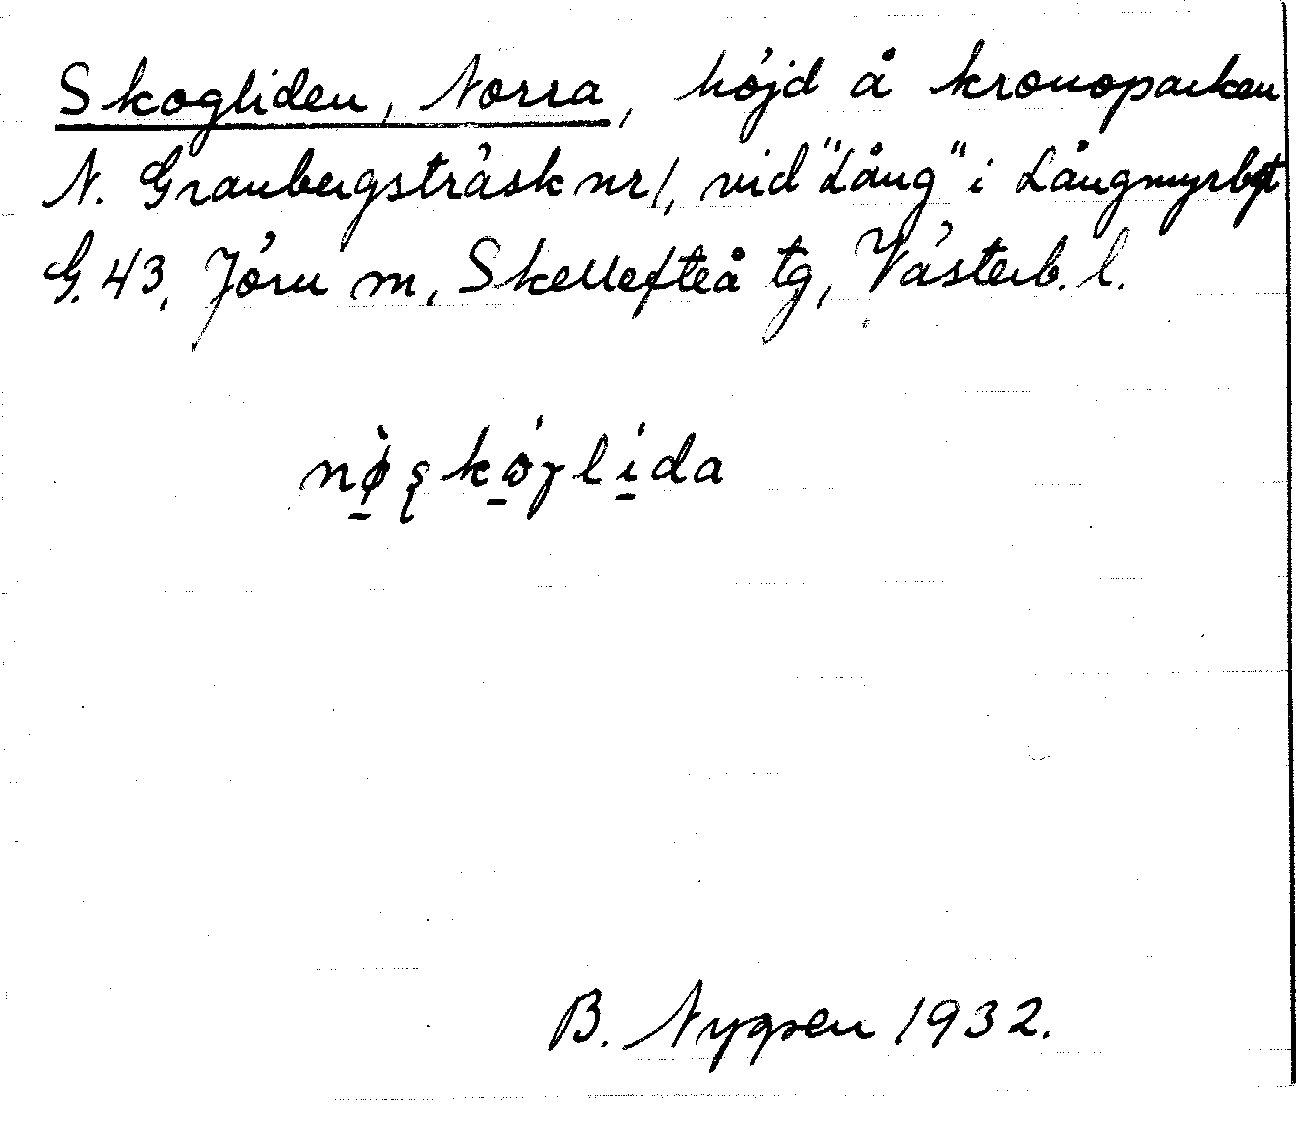 Skogliden, Norra, höjd å kronoparken
N. Granbergsträsk nr 1, vid "Lång" i Långmyrbgt
G. 43, Jörn sn, Skellefteå tg, Västerb. l.
nø̀ʂkóɣlída
B. Nygren 1932.